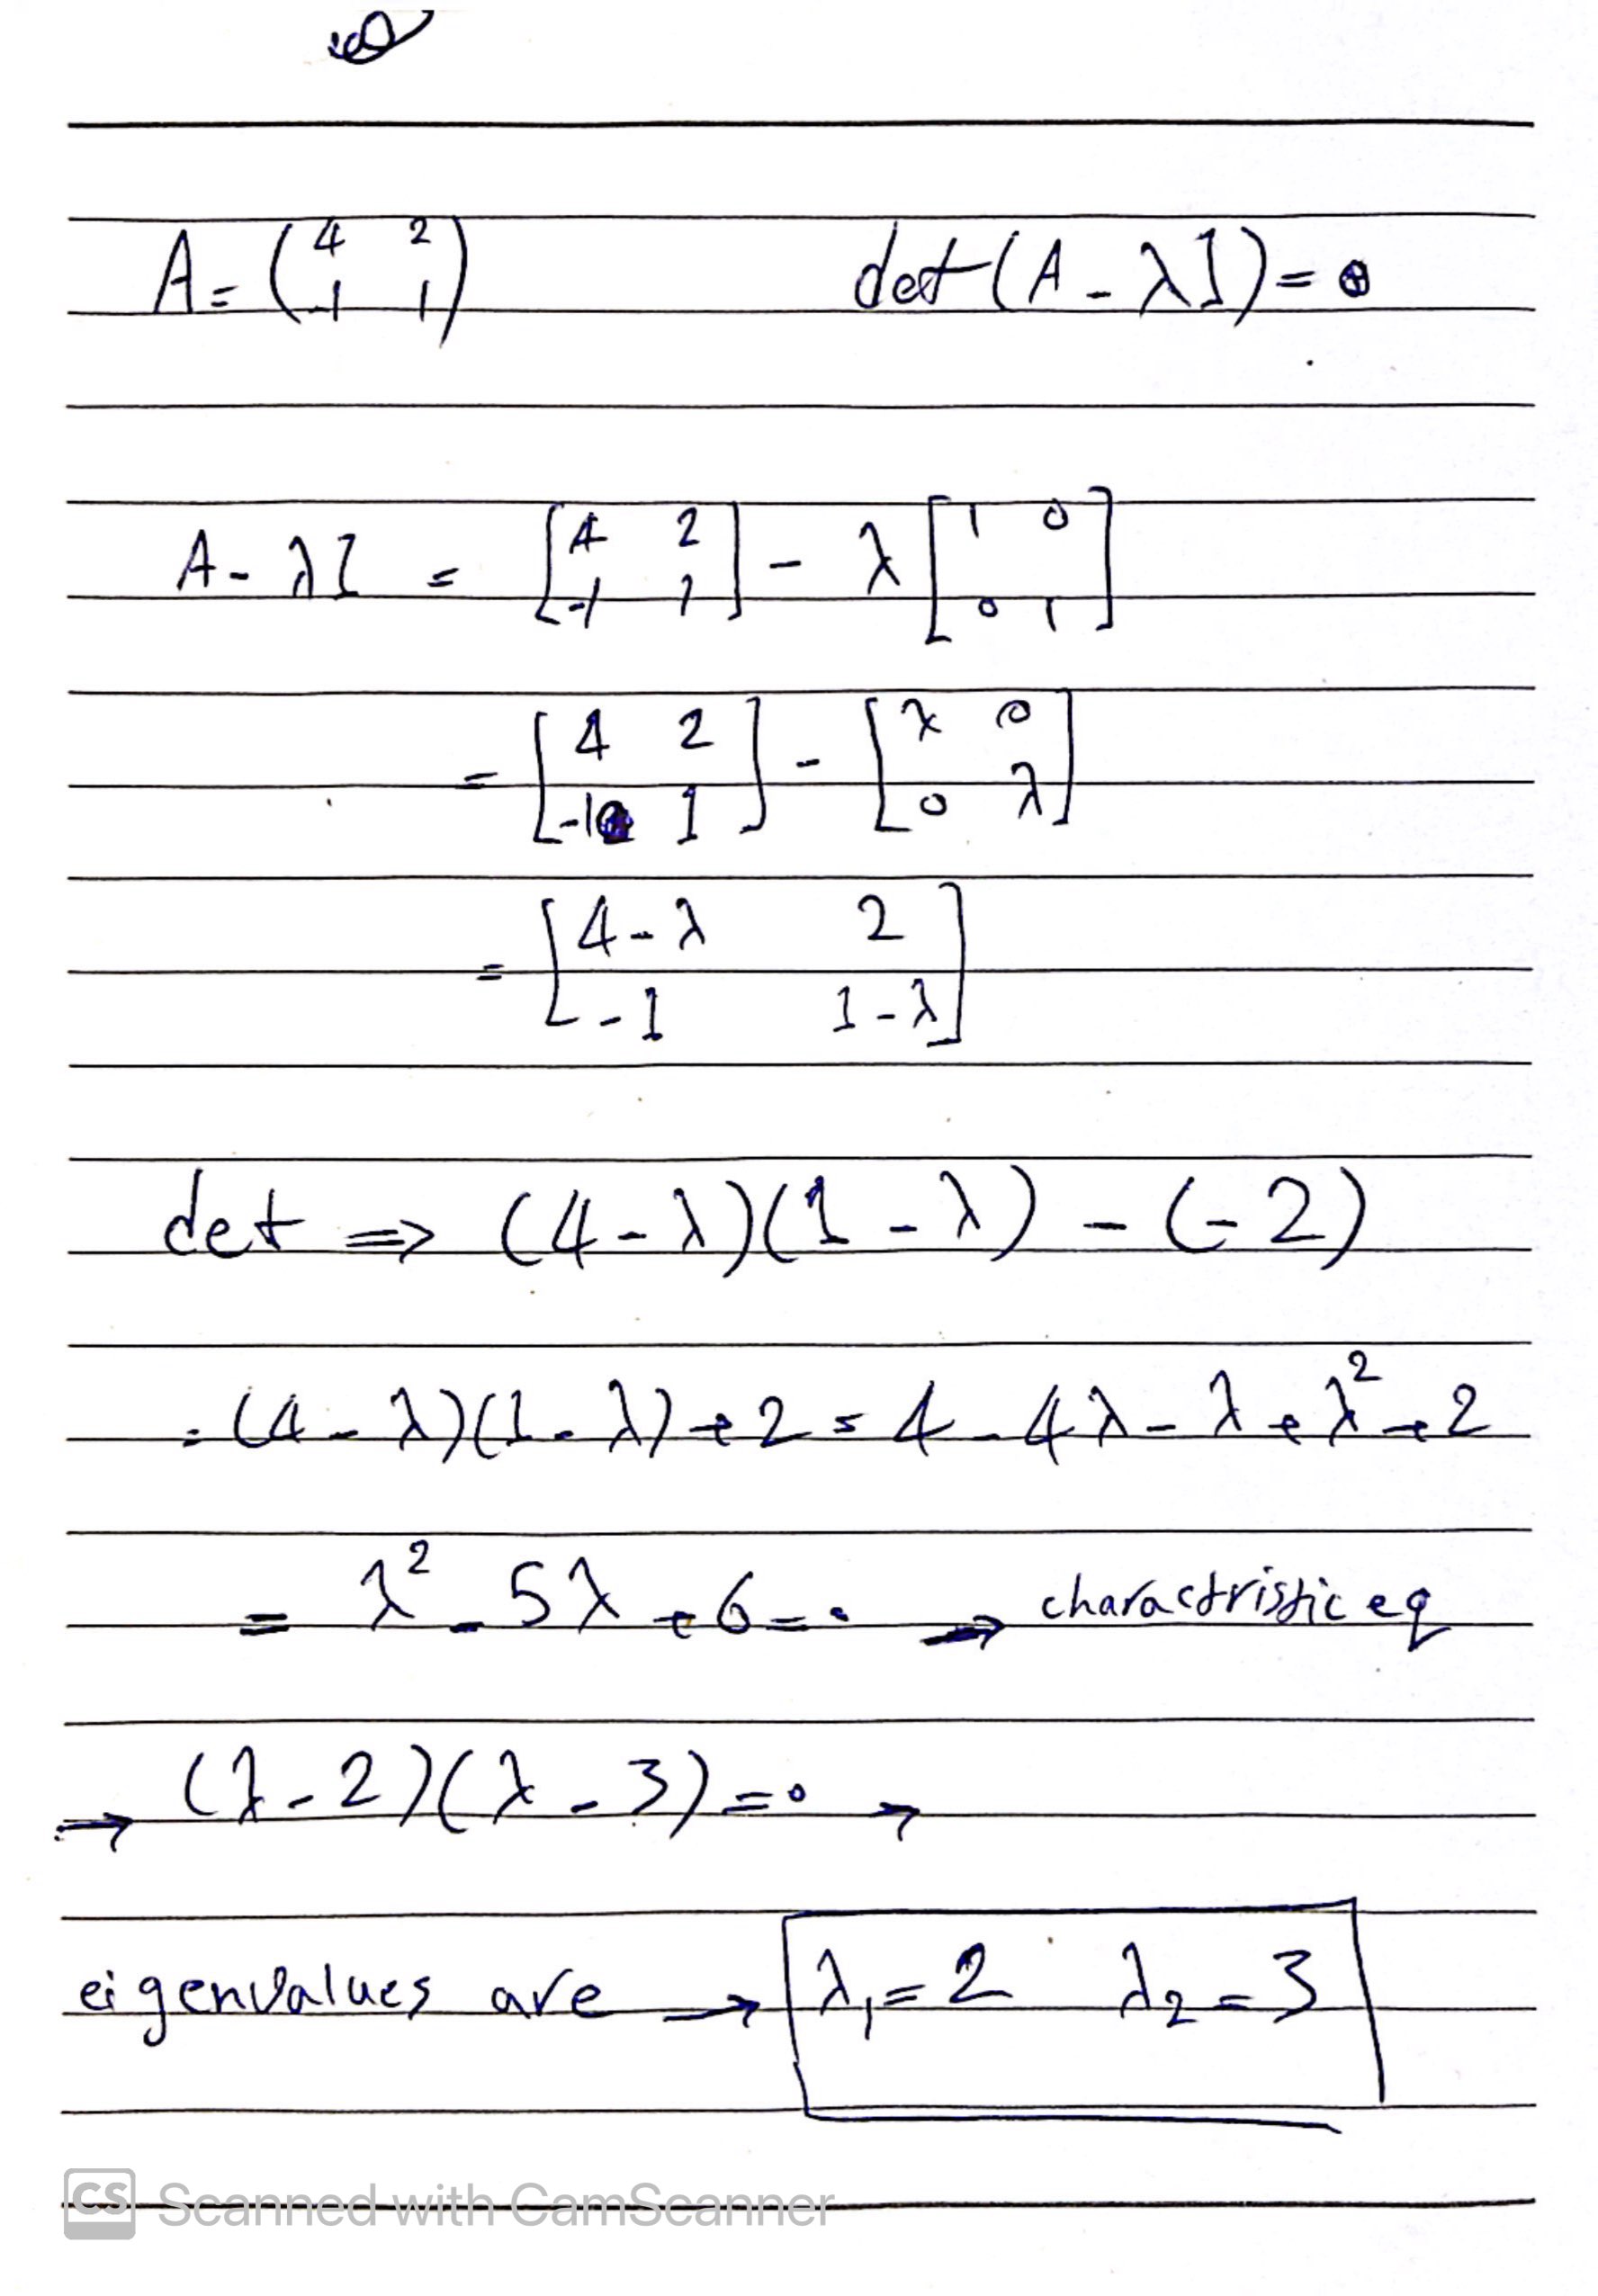 A = ( 4 2 -1 1 ) det(A - λI) = 0
A - λI = [ 4 2 -1 1 ] - λ [ 1 0 0 1 ]
= [ 4 2 -1 1 ] - [ λ 0 0 λ ]
= [ 4-λ 2 -1 1-λ ]
det ⇒ (4-λ)(1-λ) - (-2)
= (4-λ)(1-λ)+2 = 4 - 4λ - λ + λ² + 2
= λ² - 5λ + 6 = 0 → charactristic eq
→ (λ-2)(λ-3) = 0 →
eigenvalues are → λ₁ = 2 λ₂ = 3
CS Scanned with CamScanner